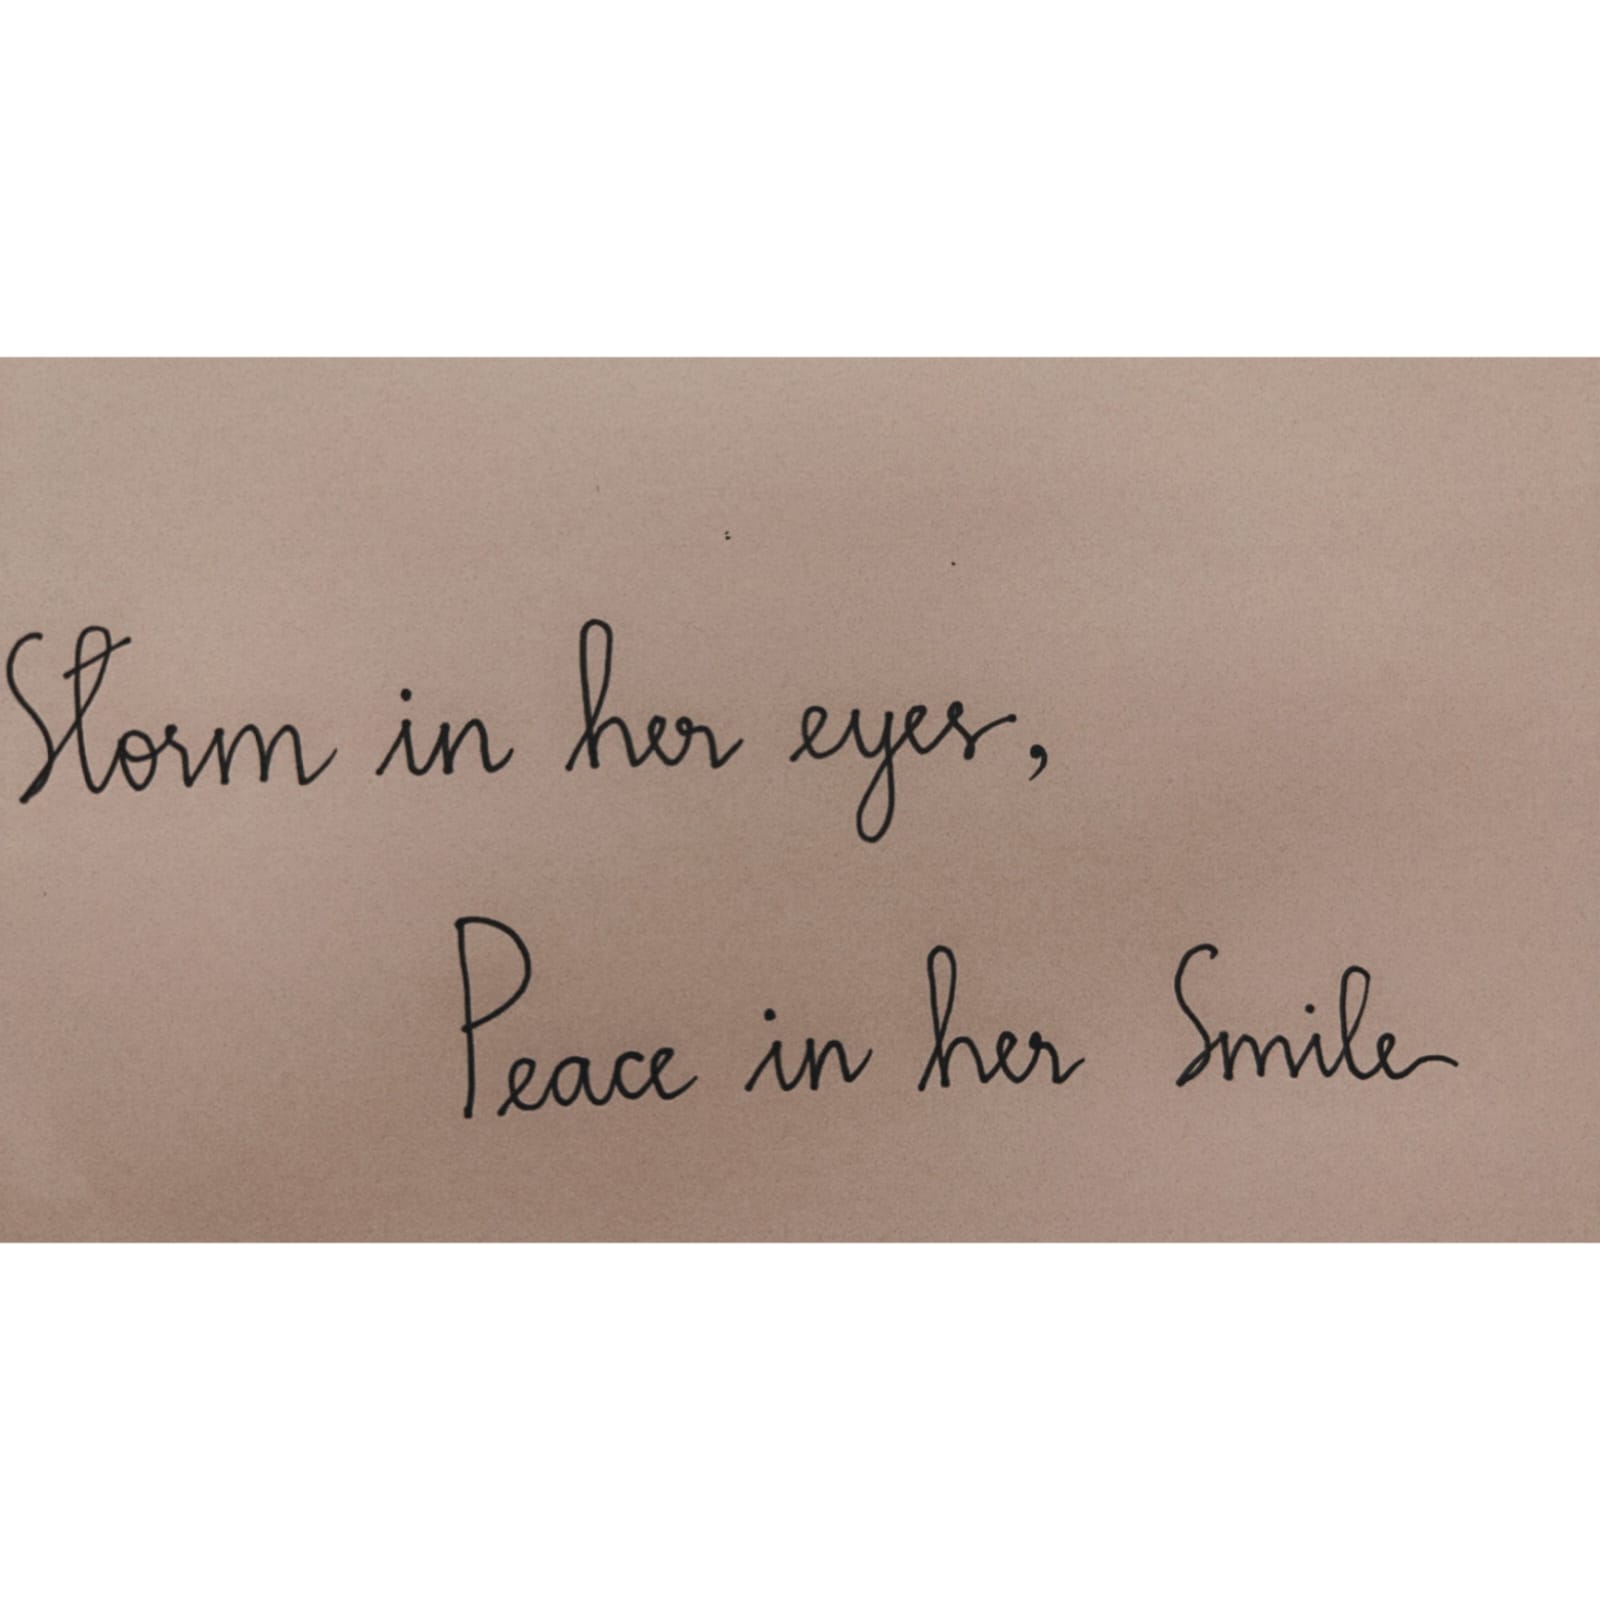 Storm in her eyes,
Peace in her Smile